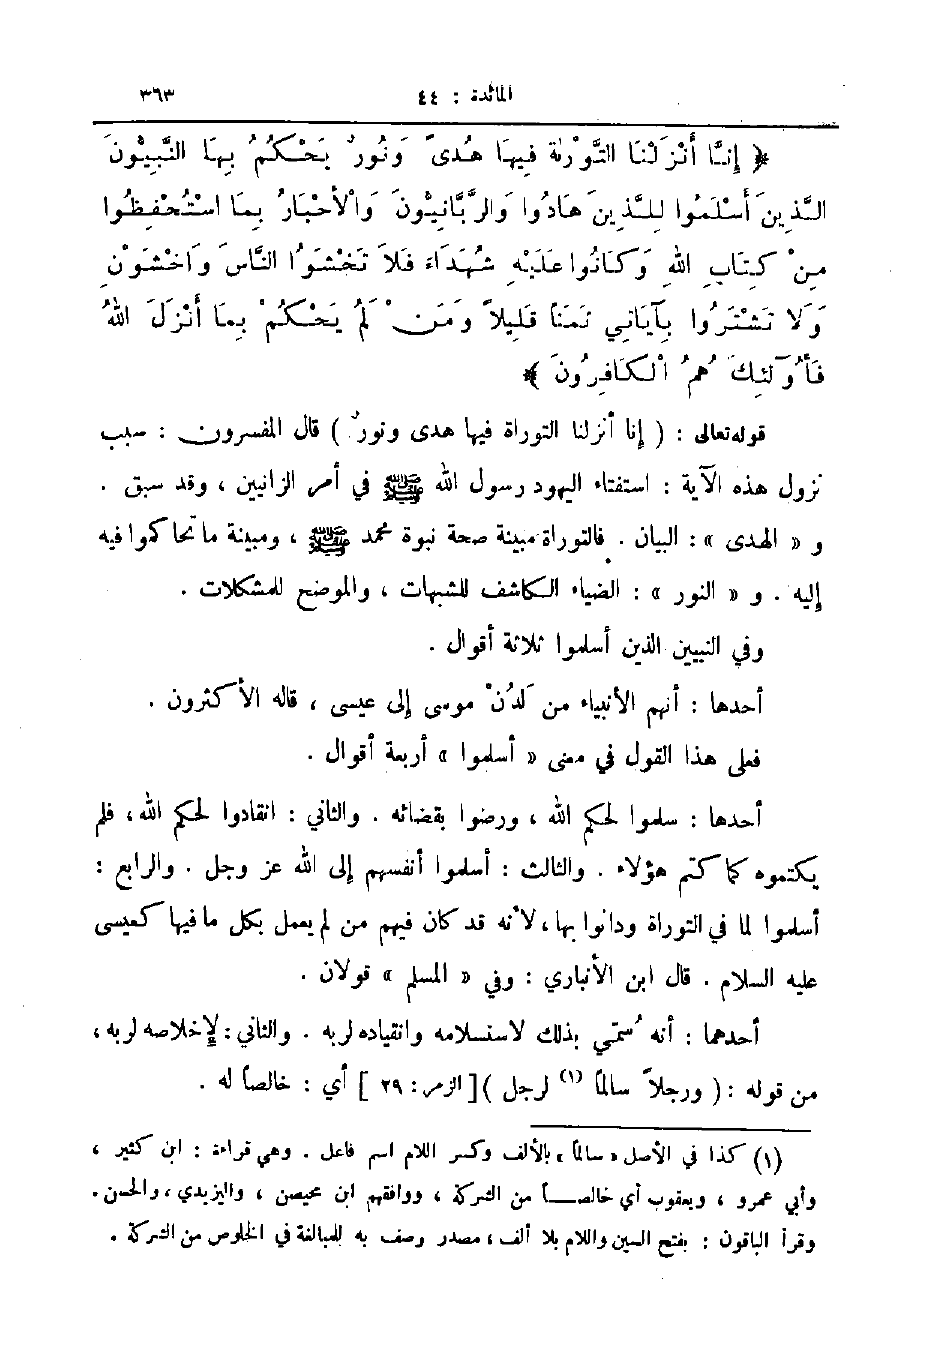 المائدة : ٤٤ ٣٦٣
﴿ إِنَّا أَنْزَلْنَا التَّوْرَاةَ فِيهَا هُدًى وَنُورٌ يَحْكُمُ بِهَا النَّبِيُّونَ
الَّذِينَ أَسْلَمُوا لِلَّذِينَ هَادُوا وَالرَّبَّانِيُّونَ وَالْأَحْبَارُ بِمَا اسْتُحْفِظُوا
مِنْ كِتَابِ اللهِ وَكَانُوا عَلَيْهِ شُهَدَاءَ فَلَا تَخْشَوُا النَّاسَ وَاخْشَوْنِ
وَلَا تَشْتَرُوا بِآيَاتِي ثَمَنًا قَلِيلًا وَمَنْ لَمْ يَحْكُمْ بِمَا أَنْزَلَ اللهُ
فَأُولَٰئِكَ هُمُ الْكَافِرُونَ ﴾
قوله تعالى : ( إنا أنزلنا التوراة فيها هدى ونورٌ ) قال المفسرون : سبب
نزول هذه الآية : استفتاء اليهود رسول الله ﷺ في أمر الزانيين ، وقد سبق .
و « الهدى » : البيان . فالتوراة مبينة صحة نبوة محمد ﷺ ، ومبينة ما تحاكموا فيه
إليه . و « النور » : الضياء الكاشف للشبهات ، والموضح للمشكلات .
وفي النبيين الذين أسلموا ثلاثة أقوال .
أحدها : أنهم الأنبياء من لَدُنْ موسى إلى عيسى ، قاله الأكثرون .
فعلى هذا القول في معنى « أسلموا » أربعة أقوال .
أحدها : سلموا لحكم الله ، ورضوا بقضائه . والثاني : انقادوا لحكم الله ، فلم
يكتموه كما كتم هؤلاء . والثالث : أسلموا أنفسهم إلى الله عز وجل . والرابع :
أسلموا لما في التوراة ودانوا بها ، لأنه قد كان فيهم من لم يعمل بكل ما فيها كعيسى
عليه السلام . قال ابن الأنباري : وفي « المسلم » قولان .
أحدهما : أنه سُمّي بذلك لاستسلامه وانقياده لربه . والثاني : لإخلاصه لربه ،
من قوله : ( ورجلاً سالماً (١) لرجل ) [ الزمر : ٢٩ ] أي : خالصاً له .
(١) كذا في الأصل « سالماً » بالألف وكسر اللام اسم فاعل . وهي قراءة : ابن كثير ،
وأبي عمرو ، ويعقوب أي خالصاً من الشركة ، ووافقهم ابن محيصن ، واليزيدي ، والحسن .
وقرأ الباقون : بفتح السين واللام بلا ألف ، مصدر وصف به للمبالغة في الخلوص من الشركة .